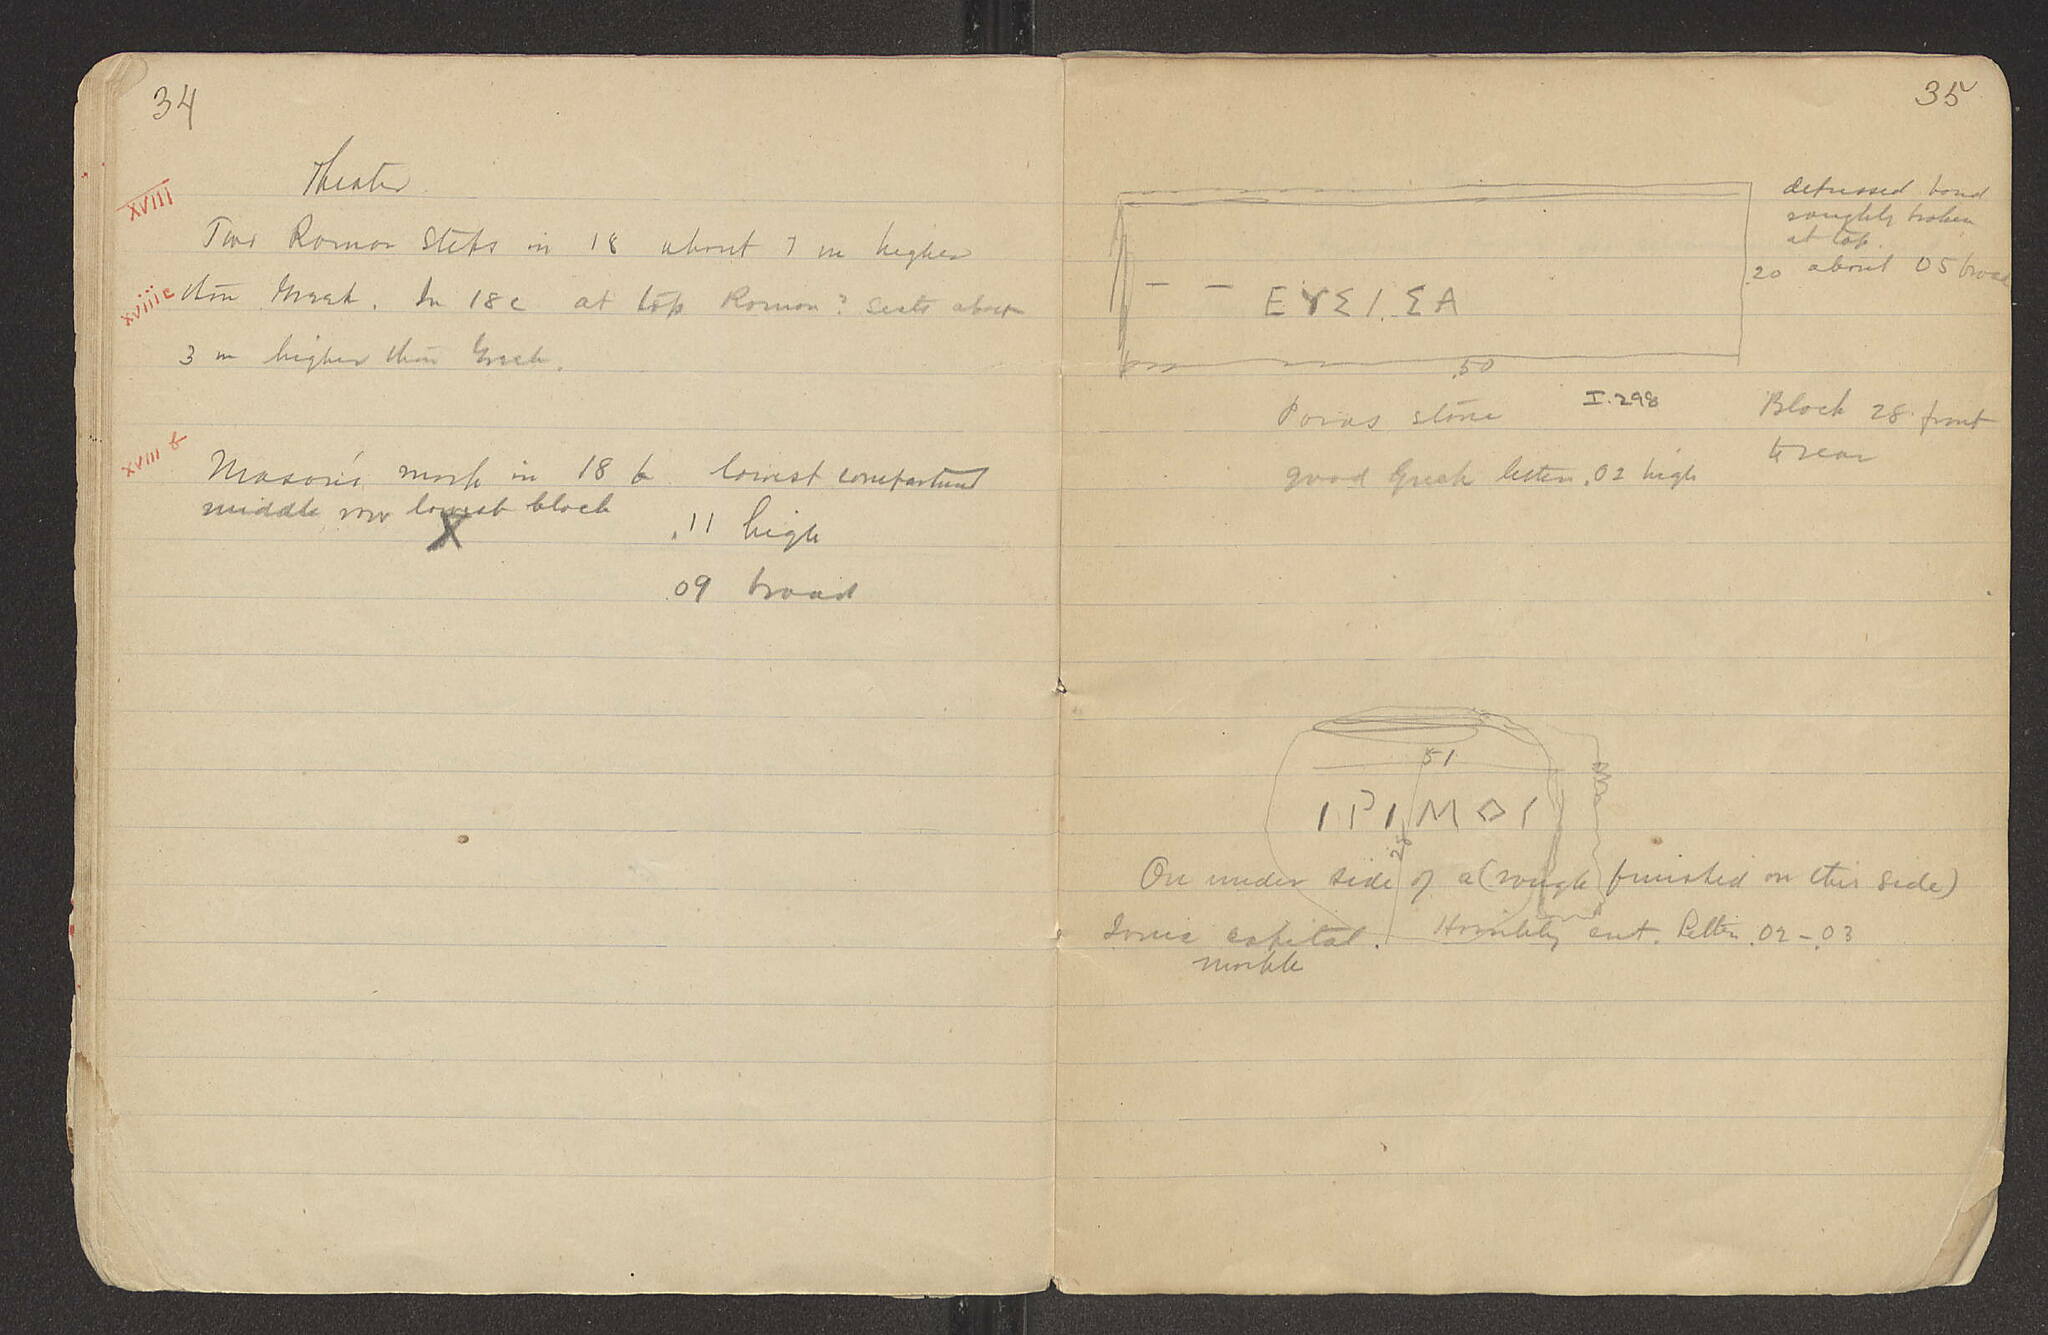 34
Theater
XVIII
Two Roman steps in 18 about 7 m higher
XVIII c
than Greek. In 18c at top Roman? seats about
3 m higher than Greek.
XVIII b
Mason's mark in 18 b lowest compartment
middle row lowest block
X
.11 high
.09 broad
35
depressed band
roughly broken
at top.
.20 about 05 broad
– – ΕΥΣΙ.ΣΑ
.50
Poros stone
I.298
Block 28 front
to rear
good Greek letters .02 high
51
ΙΡΙΜΟΙ
28
On under side of a (rough finished on this side)
Ionic capital. Horribly cut. Letters .02 – .03
marble